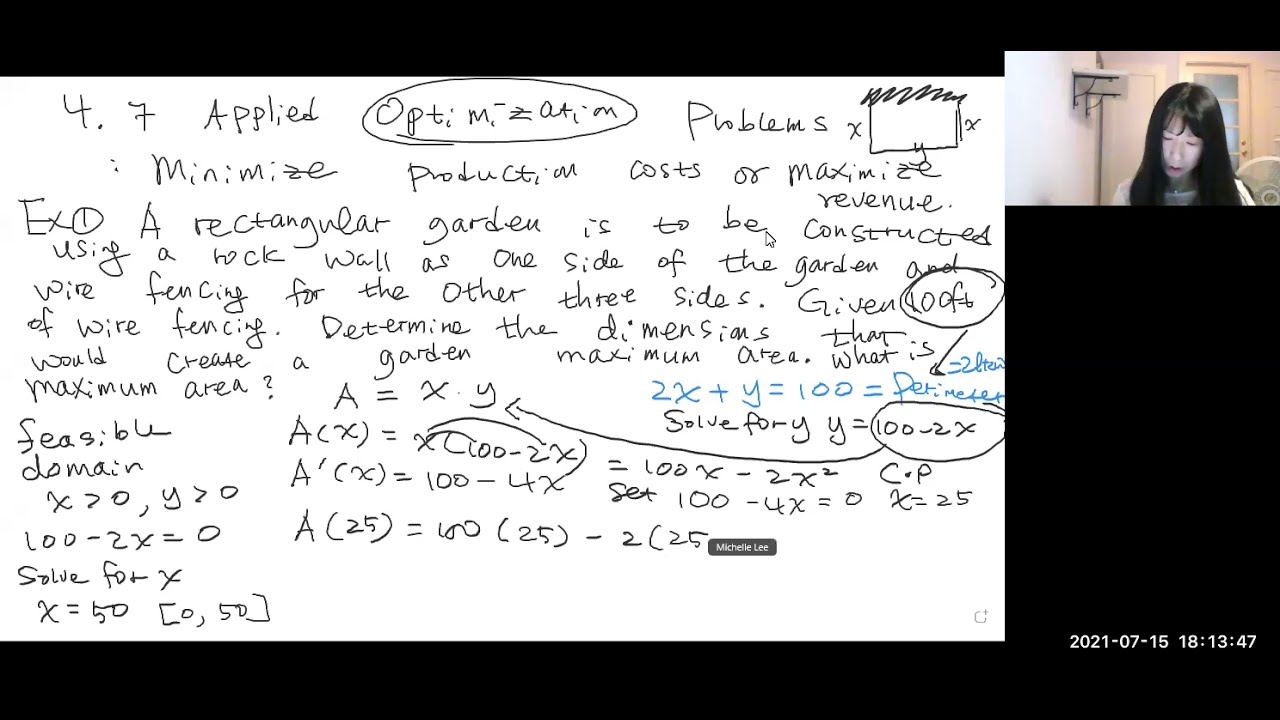 4.7 Applied Optimization Problems
x x
y
: Minimize production costs or maximize
revenue.
Ex① A rectangular garden is to be constructed
using a rock wall as one side of the garden and
wire fencing for the other three sides. Given 100ft
of wire fencing. Determine the dimensions that
would create a garden maximum area. What is
maximum area?
A = x · y
2x + y = 100 = Perimeter
Solve for y y = 100-2x
feasible
domain
x > 0, y > 0
100 - 2x = 0
Solve for x
x = 50 [0, 50]
A(x) = x(100 - 2x)
= 100x - 2x²
A'(x) = 100 - 4x
C.P
Set 100 - 4x = 0 x = 25
A(25) = 100 (25) - 2(25
Michelle Lee
2021-07-15 18:13:47